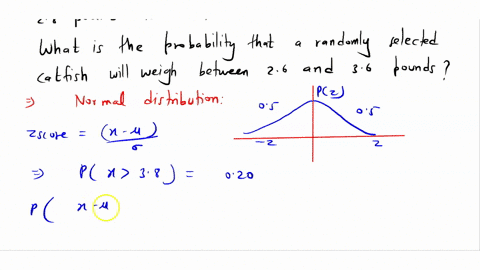 What is the probability that a randomly selected
catfish will weigh between 2.6 and 3.6 pounds?
⇒ Normal distribution:
P(z)
0.5 0.5
zscore = (x-μ)/σ
-z z
⇒ P( x > 3.8 ) = 0.20
P( x-μ